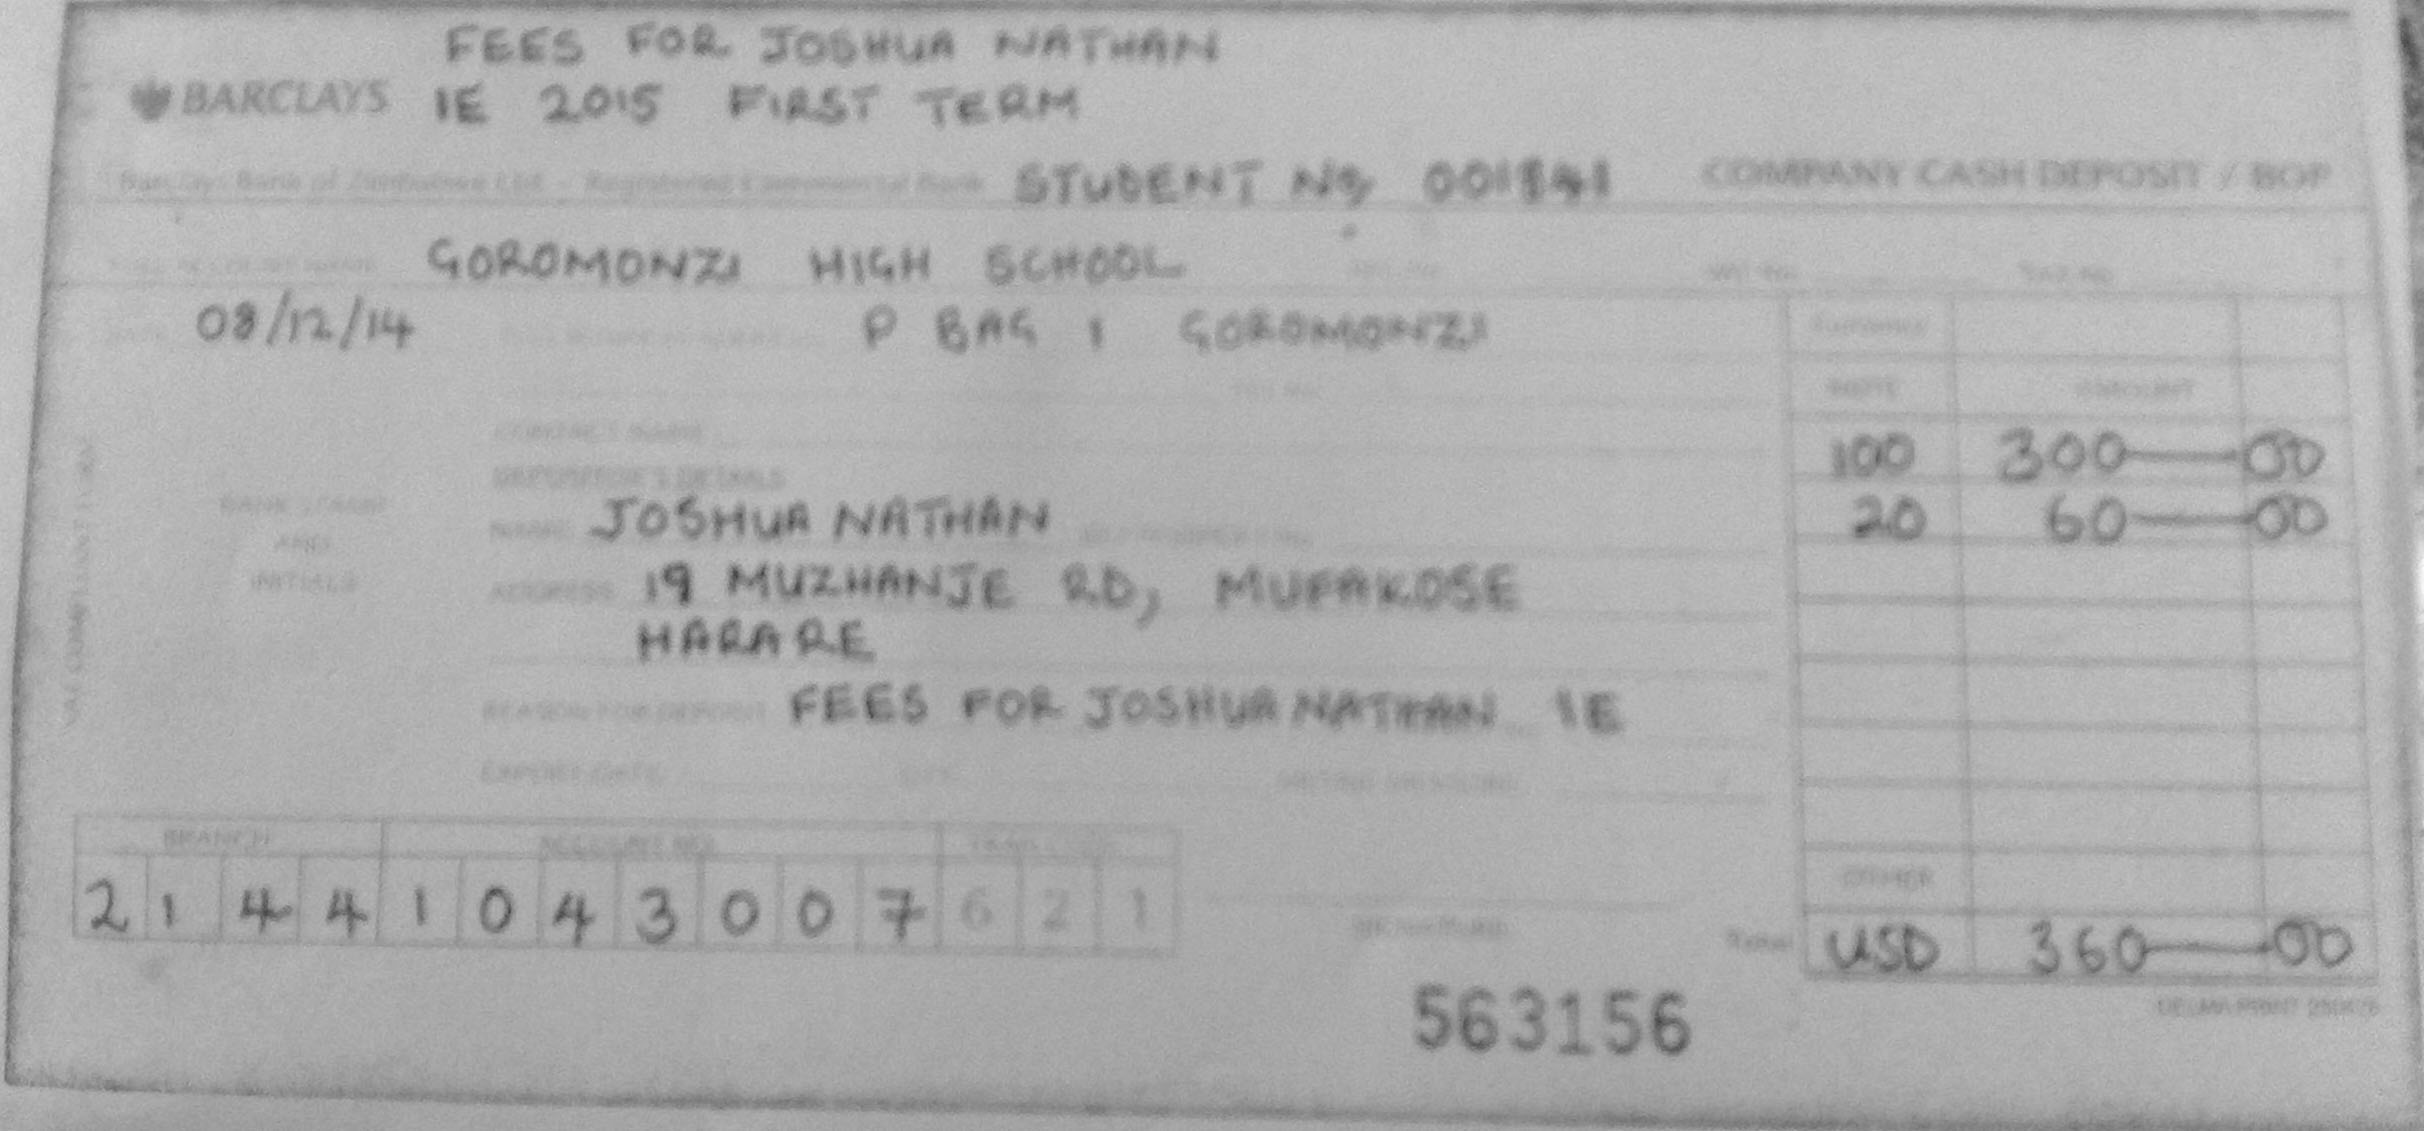 FEES FOR JOSHUA NATHAN
BARCLAYS 1E 2015 FIRST TERM
Barclays Bank of Zimbabwe Ltd - Registered Commercial Bank STUDENT No 001841 COMPANY CASH DEPOSIT / BOP
GOROMONZI HIGH SCHOOL
08/12/14 P BAG 1 GOROMONZI
NOTE AMOUNT
CONTACT NAME
100 300—00
DEPOSITOR'S DETAILS
20 60—00
BANK STAMP
AND
INITIALS
NAME JOSHUA NATHAN
ADDRESS 19 MUZHANJE RD, MUFAKOSE
HARARE
REASON FOR DEPOSIT FEES FOR JOSHUA NATHAN 1E
BRANCH ACCOUNT NO.
OTHER
2 1 4 4 1 0 4 3 0 0 7 6 2 1
Total USD 360—00
563156